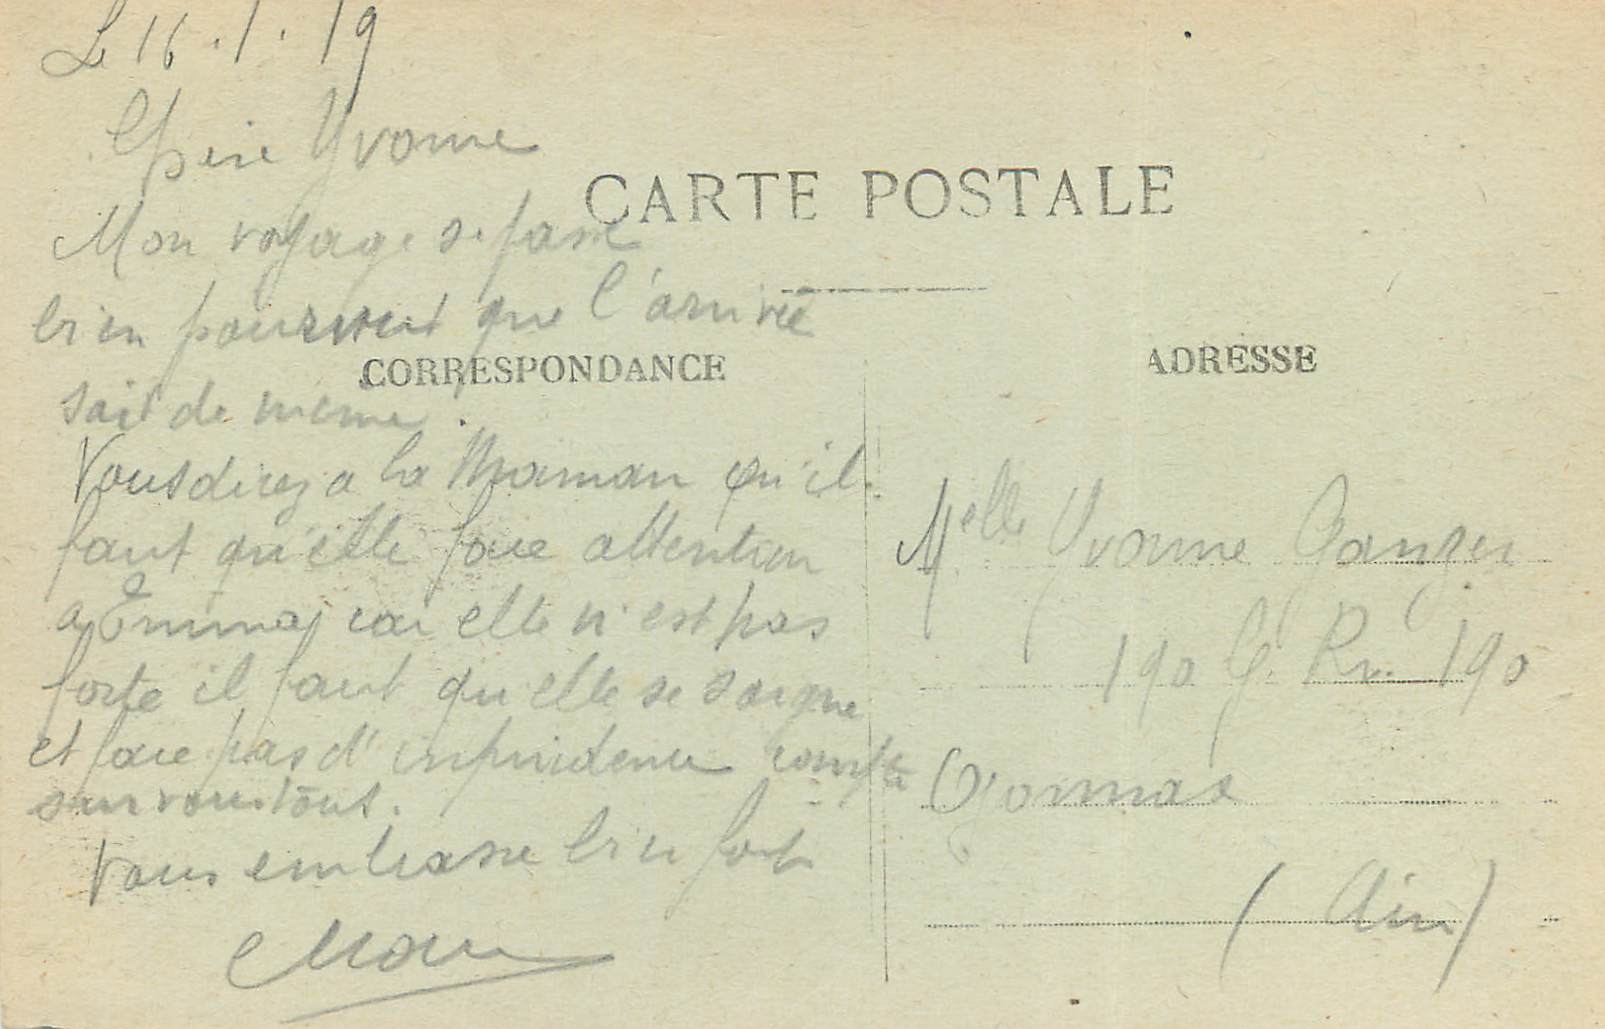 Le 16.1.19
Chère Yvonne
CARTE POSTALE
Mon voyage se passe
bien pourvut que l'arrivée
CORRESPONDANCE
soit de meme.
Vous direz a la Maman qu'il
faut qu'elle face attention
a Emma car elle n'est pas
forte il faut qu'elle se soigne
et face pas d'inprudence compte
sur vous tous.
Vous embrasse bien fort
ADRESSE
Melle Yvonne
190 G. Ru. 190
Oyonnax
(Ain)